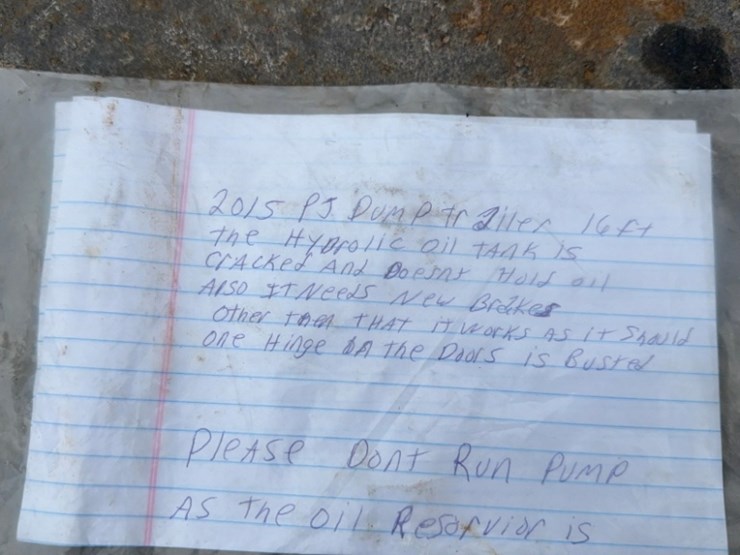 2015 PJ Dump trailer 16ft
the Hydrolic oil tank is
cracked And Doesnt Hold oil
Also It Needs New Brakes
Other then THAT it works As it Should
One Hinge on the Doors is Busted
Please Dont Run Pump
As the oil Resarvior is